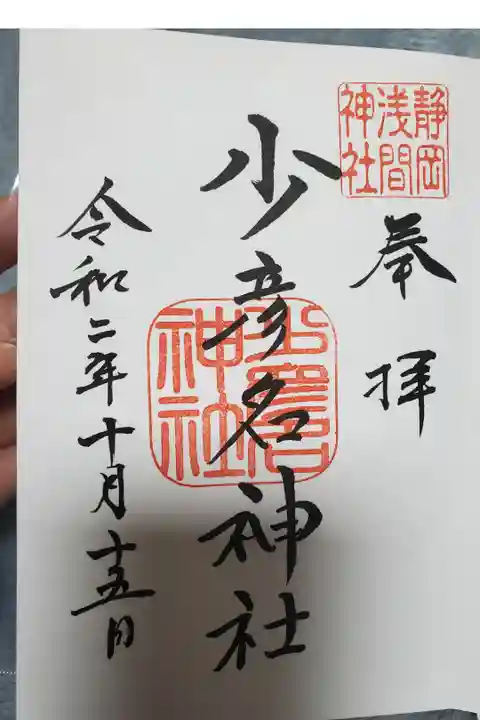 静岡
浅間
神社
奉拝
少彦名神社
神社
令和二年十月十五日